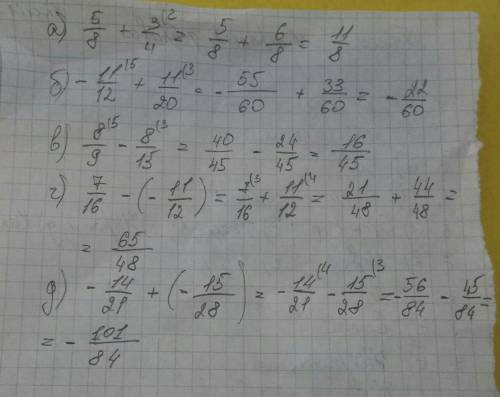 а) 5/8 + 3/4⁽² = 5/8 + 6/8 = 11/8
б) - 11/12⁽⁵ + 11/20⁽³ = - 55/60 + 33/60 = - 22/60
в) 8/9⁽⁵ - 8/15⁽³ = 40/45 - 24/45 = 16/45
г) 7/16 - (- 11/12) = 7/16⁽³ + 11/12⁽⁴ = 21/48 + 44/48 =
= 65/48
д) - 14/21 + (- 15/28) = - 14/21⁽⁴ - 15/28⁾³ = - 56/84 - 45/84 =
= - 101/84